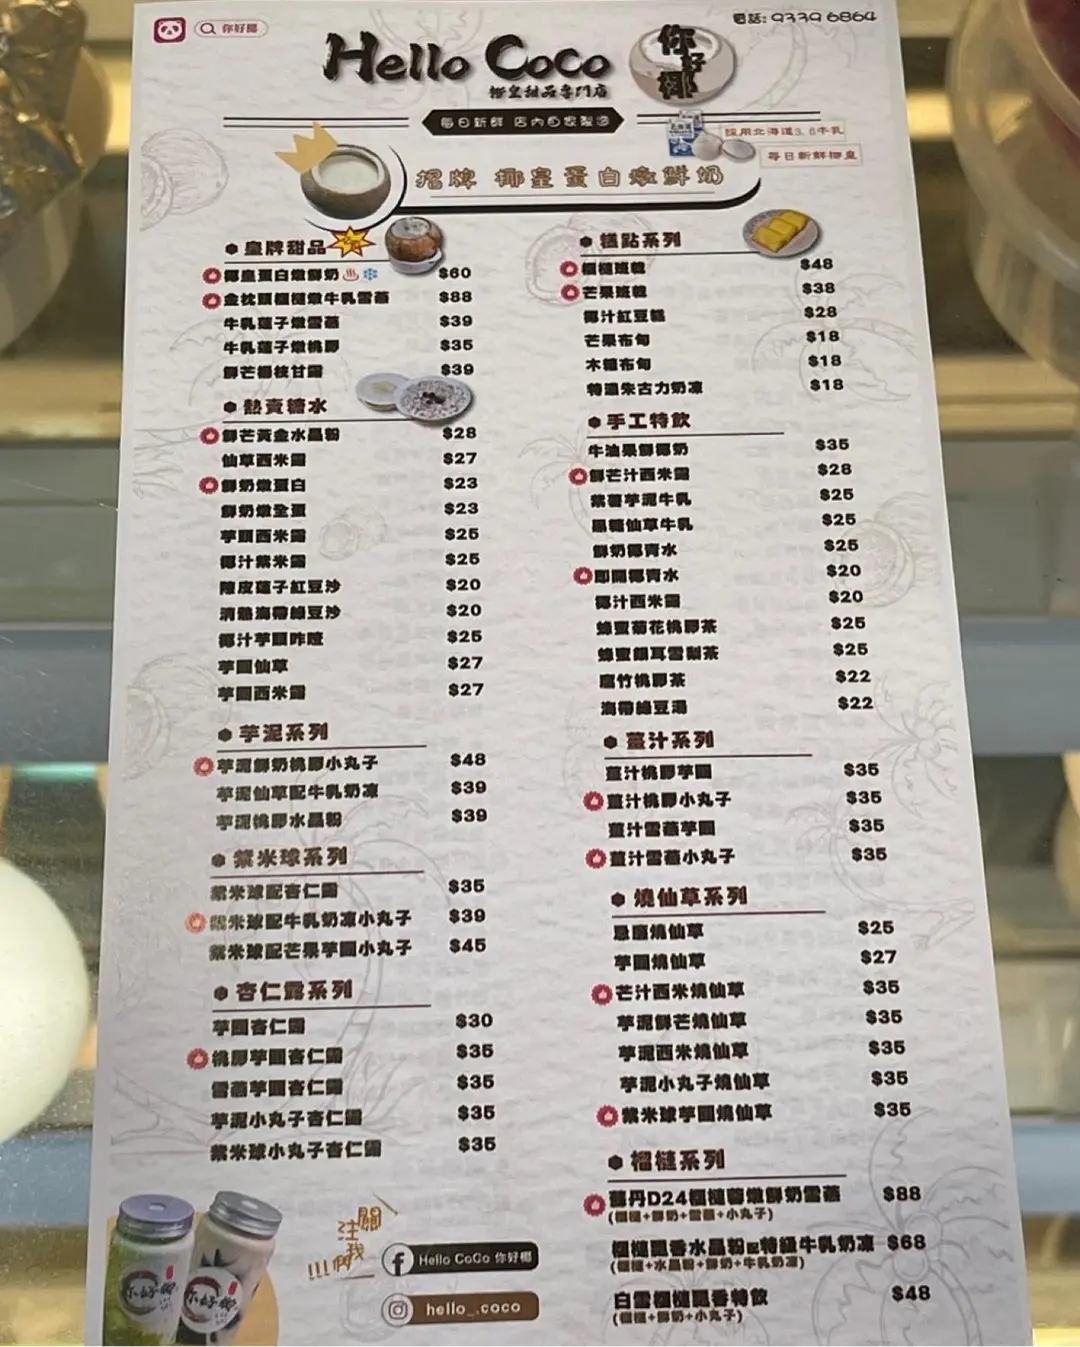 你好椰
電話: 9339 6864
Hello CoCo
你好椰
椰皇甜品專門店
每日新鮮 店內自家製造
採用北海道3.6牛乳
每日新鮮椰皇
招牌 椰皇蛋白燉鮮奶
皇牌甜品
椰皇蛋白燉鮮奶 $60
金枕頭榴槤燉牛乳雪燕 $88
牛乳蓮子燉雪燕 $39
牛乳蓮子燉桃膠 $35
鮮芒楊枝甘露 $39
熱賣糖水
鮮芒黃金水晶粉 $28
仙草西米露 $27
鮮奶燉蛋白 $23
鮮奶燉全蛋 $23
芋頭西米露 $25
椰汁紫米露 $25
陳皮蓮子紅豆沙 $20
清熱海帶綠豆沙 $20
椰汁芋頭咋喳 $25
芋圓仙草 $27
芋圓西米露 $27
芋泥系列
芋泥鮮奶桃膠小丸子 $48
芋泥仙草配牛乳奶凍 $39
芋泥桃膠水晶粉 $39
紫米球系列
紫米球配杏仁露 $35
紫米球配牛乳奶凍小丸子 $39
紫米球配芒果芋圓小丸子 $45
杏仁露系列
芋圓杏仁露 $30
桃膠芋圓杏仁露 $35
雪燕芋圓杏仁露 $35
芋泥小丸子杏仁露 $35
紫米球小丸子杏仁露 $35
關注我們!!!
Hello CoCo 你好椰
hello_.coco
糕點系列
榴槤班戟 $48
芒果班戟 $38
椰汁紅豆糕 $28
芒果布甸 $18
木糠布甸 $18
特濃朱古力奶凍 $18
手工特飲
牛油果鮮椰奶 $35
鮮芒汁西米露 $28
紫薯芋泥牛乳 $25
黑糖仙草牛乳 $25
鮮奶椰青水 $25
即開椰青水 $20
椰汁西米露 $20
蜂蜜菊花桃膠茶 $25
蜂蜜銀耳雪梨茶 $25
腐竹桃膠茶 $22
海帶綠豆湯 $22
薑汁系列
薑汁桃膠芋圓 $35
薑汁桃膠小丸子 $35
薑汁雪燕芋圓 $35
薑汁雪燕小丸子 $35
燒仙草系列
恩窩燒仙草 $25
芋圓燒仙草 $27
芒汁西米燒仙草 $35
芋泥鮮芒燒仙草 $35
芋泥西米燒仙草 $35
芋泥小丸子燒仙草 $35
紫米球芋圓燒仙草 $35
榴槤系列
蘇丹D24榴槤蓉燉鮮奶雪燕 $88
(榴槤+鮮奶+雪燕+小丸子)
榴槤飄香水晶粉配特級牛乳奶凍 $68
(榴槤+水晶粉+鮮奶+牛乳奶凍)
白雪榴槤飄香特飲 $48
(榴槤+鮮奶+小丸子)
你好椰
你好椰